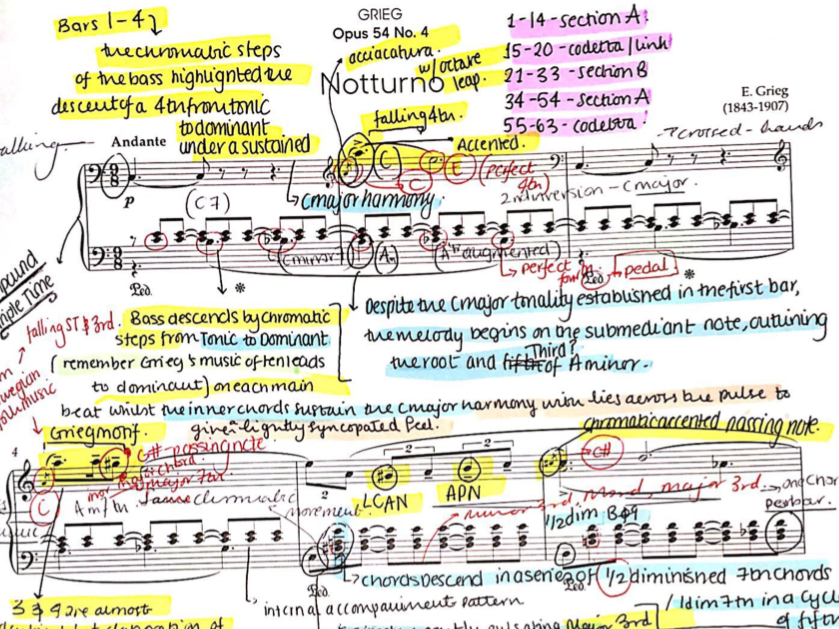 GRIEG
Opus 54 No. 4
Notturno
E. Grieg
(1843-1907)
Bars 1-4
the chromatic steps
of the bass highlighted the
descent of a 4th from tonic
to dominant
under a sustained
C major harmony.
acciacatura.
w/ octave
leap.
falling 4th.
Accented.
1-14 - section A
15-20 - codetta / link
21-33 - section B
34-54 - section A
55-63 - codetta
→ crossed-hands
Andante
p
(C7)
C
C
E
(perfect
4th)
2nd inversion - C major.
(minor)
(Am)
augmented)
→ perfect
pedal
Ped.
*
Ped.
*
falling ST & 3rd.
Bass descends by chromatic
steps from Tonic to Dominant
(remember Grieg's music often leads
to dominant) on each main
beat whilst the inner chords sustain the C major harmony with ties across the pulse to
give a lightly syncopated feel.
Despite the C major tonality established in the first bar,
the melody begins on the submediant note, outlining
Third?
the root and fifth of A minor.
Grieg motif.
G# - passing note
major 7th.
C
Am
chromatic
movement.
4
2
2
2
LCAN
APN
chromatic accented passing note.
C#
minor 3rd
major 3rd.
→ one chord
per bar.
1/2 dim
Ped.
Ped.
→ chords descend in a series of 1/2 diminished 7th chords
/ 1 dim 7th in a cycle
of fifths
accompaniment pattern
3 & 4 are almost
major 3rd